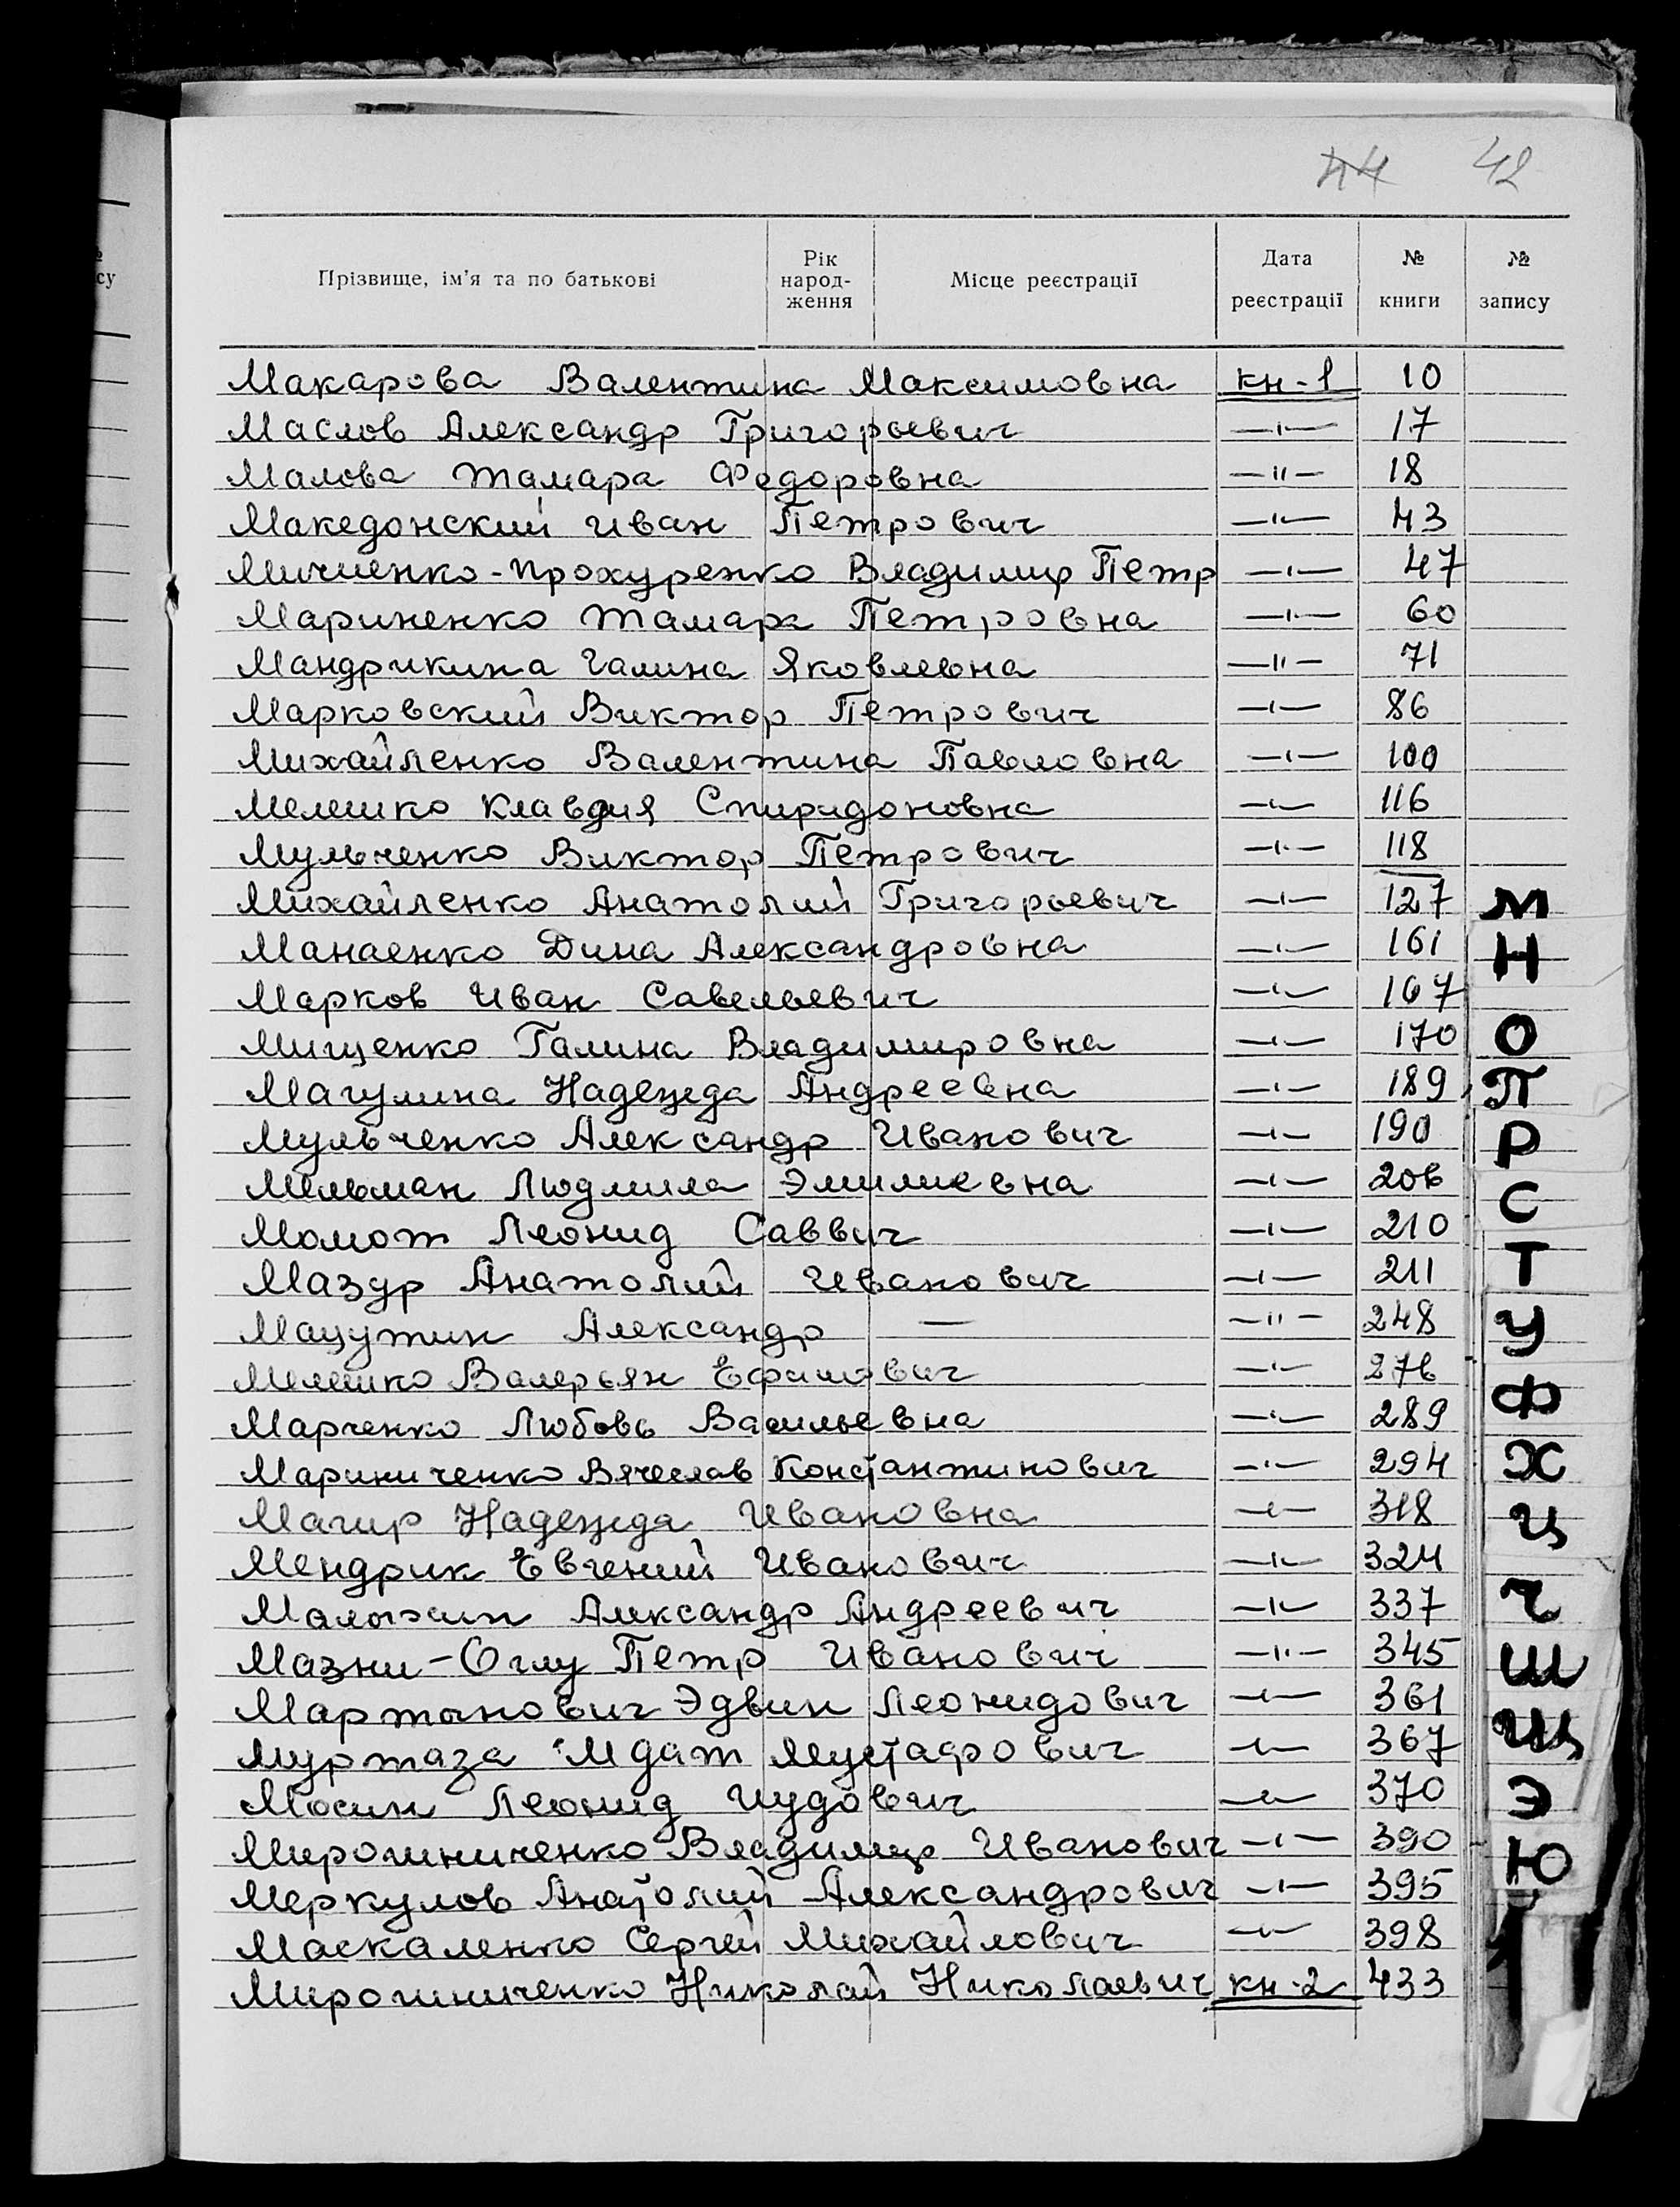 44 42
Прізвище, ім'я та по батькові Рік народ- ження Місце реєстрації Дата реєстрації № книги № запису
Макарова Валентина Максимовна кн-1 10
Маслов Александр Григорьевич —"— 17
Малова Тамара Федоровна —"— 18
Македонский Иван Петрович —"— 43
Мичиенко-Прохуренко Владимир Петр —"— 47
Мариненко Тамара Петровна —"— 60
Мандрикина Галина Яковлевна —"— 71
Марковский Виктор Петрович —"— 86
Михайленко Валентина Павловна —"— 100
Мелешко Клавдия Спиридоновна —"— 116
Мульченко Виктор Петрович —"— 118
Михайленко Анатолий Григорьевич —"— 127
Манаенко Дина Александровна —"— 161
Марков Иван Савельевич —"— 167
Мищенко Галина Владимировна —"— 170
Магулина Надежда Андреевна —"— 189
Мульченко Александр Иванович —"— 190
Мельман Людмила Эмилиевна —"— 206
Момот Леонид Саввич —"— 210
Мазур Анатолий Иванович —"— 211
Мацутин Александр — —"— 248
Мелешко Валерьян Ефимович —"— 276
Марченко Любовь Васильевна —"— 289
Мариниченко Вячеслав Константинович —"— 294
Магир Надежда Ивановна —"— 318
Мендрик Евгений Иванович —"— 324
Малыхин Александр Андреевич —"— 337
Мазни-Оглу Петр Иванович —"— 345
Мартынович Эдвин Леонидович —"— 361
Муртаза Мдат Мустафович —"— 367
Мосин Леонид Иудович —"— 370
Мирошниченко Владимир Иванович —"— 390
Меркулов Анатолий Александрович —"— 395
Маскаленко Сергей Михайлович —"— 398
Мирошниченко Николай Николаевич кн-2 433
М
Н
О
П
Р
С
Т
У
Ф
Х
Ц
Ч
Ш
Щ
Э
Ю